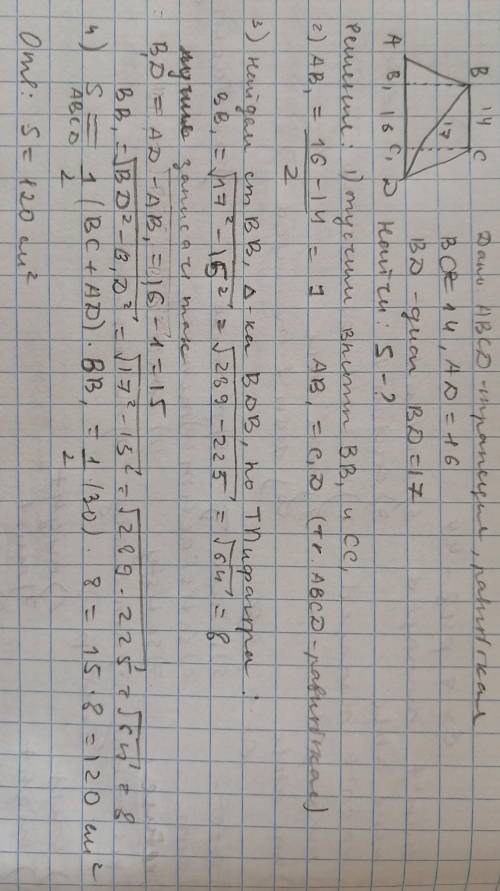 B 14 C
17
A B₁ 16 C₁ D
Дано ABCD - трапеция, равнобокая
BC = 14, AD = 16
BD - диаг BD = 17
Найти: S - ?
Решение: 1) опустим высоты BB₁ и CC₁
2) AB₁ = (16 - 14)/2 = 1 AB₁ = C₁D (т.к. ABCD - равнобокая)
3) найдем ст BB₁ Δ-ка BDB₁ по Т Пифагора:
BB₁ = √(17² - 15²) = √(289 - 225) = √64 = 8
лучше записать так
: B₁D = AD - AB₁ = 16 - 1 = 15
BB₁ = √(BD² - B₁D²) = √(17² - 15²) = √(289 - 225) = √64 = 8
4) S ABCD = 1/2 (BC + AD) · BB₁ = 1/2 (30) · 8 = 15 · 8 = 120 см²
Отв: S = 120 см²